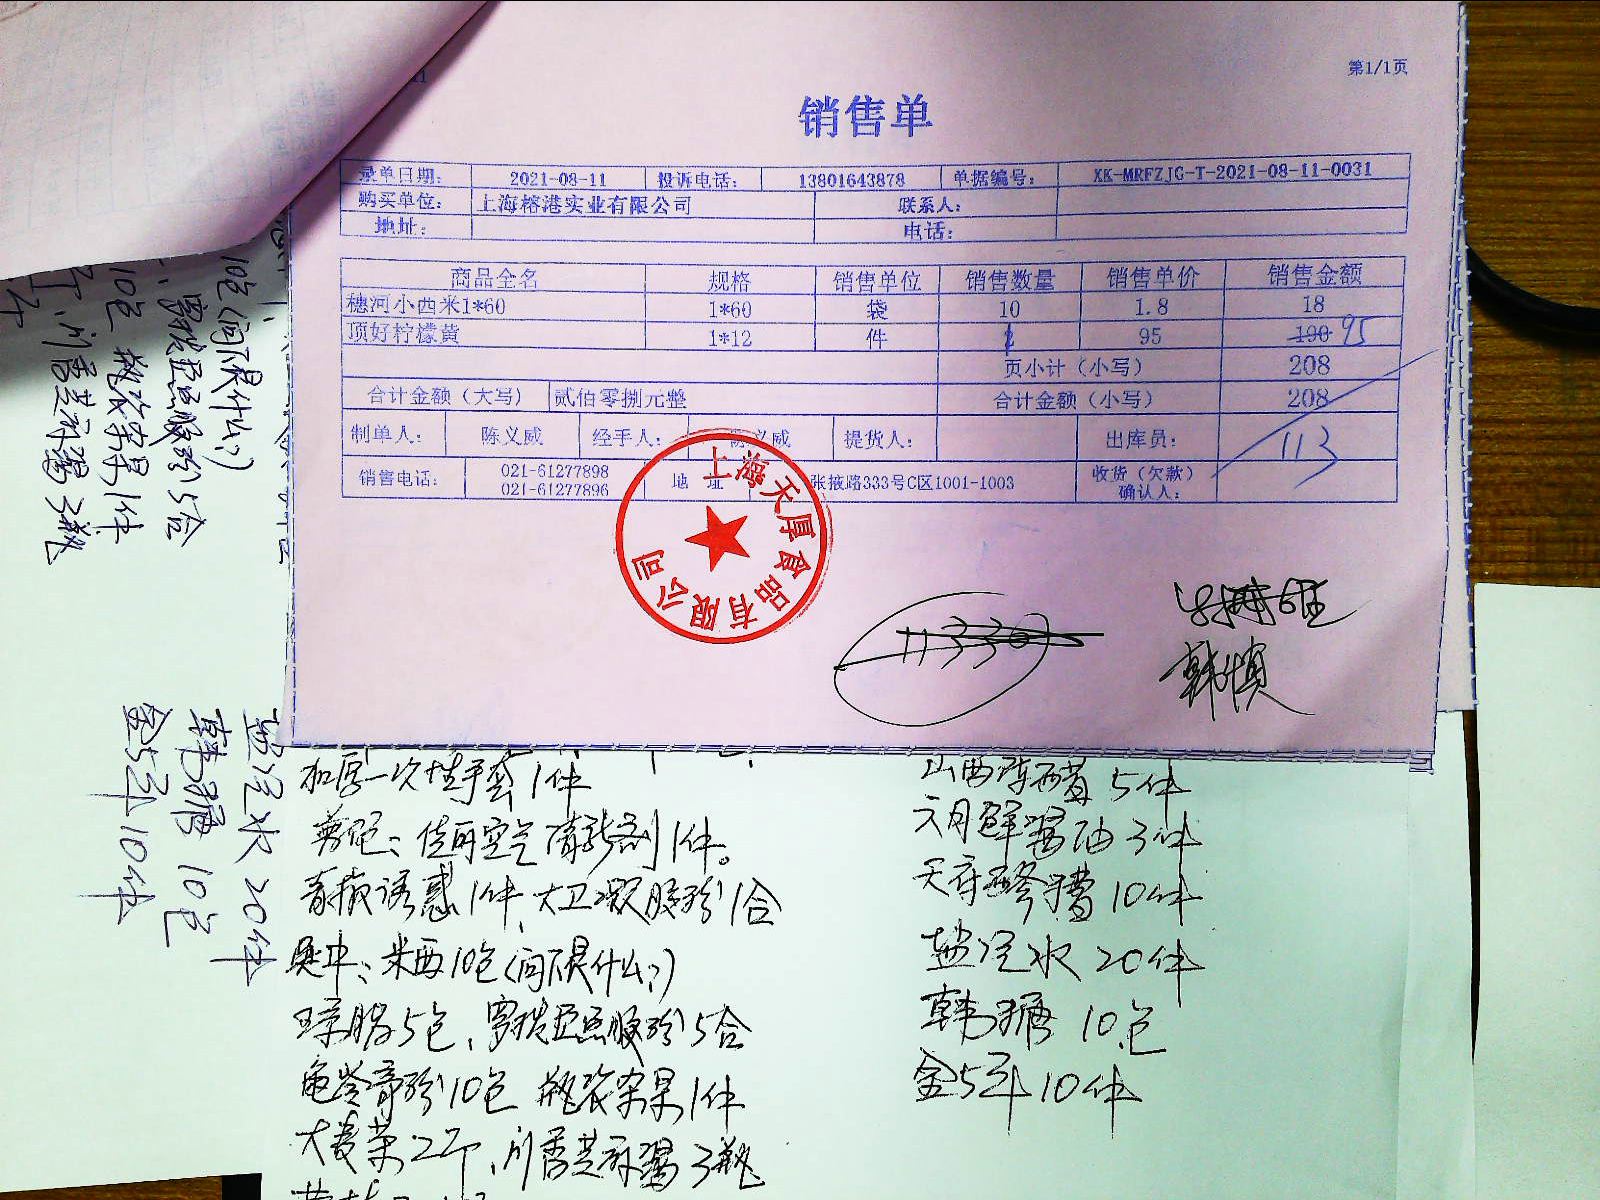 第1/1页
销售单
录单日期： 2021-08-11 投诉电话： 13801643878 单据编号： XK-MRFZJG-T-2021-08-11-0031
购买单位： 上海榕港实业有限公司 联系人：
地址： 电话：
商品全名 规格 销售单位 销售数量 销售单价 销售金额
穗河小西米1*60 1*60 袋 10 1.8 18
顶好柠檬黄 1*12 件 95 190 95
页小计（小写） 208
合计金额（大写） 贰佰零捌元整 合计金额（小写） 208
制单人： 陈义威 经手人： 陈义威 提货人： 出库员： 113
销售电话： 021-61277898 021-61277896 地址 张掖路333号C区1001-1003 收货（欠款）确认人：
上海天厚食品有限公司
11330
韩慎
加厚一次性手套1件
佳丽空气清新剂1件。
诱惑1件、大卫凝胶粉1合
米西10包(问下是什么?)
琼脂5包、罗拔臣鱼胶粉5合
龟苓膏粉10包 瓶装杂果1件
芝麻酱3瓶
山西陈醋5件
六月鲜酱油3件
天府醪糟10件
盐汽水20件
韩糖10包
10件
10包(问下是什么?)
鱼胶粉5合
10包 瓶装杂果1件
芝麻酱3瓶
盐汽水20件
韩糖10包
10件